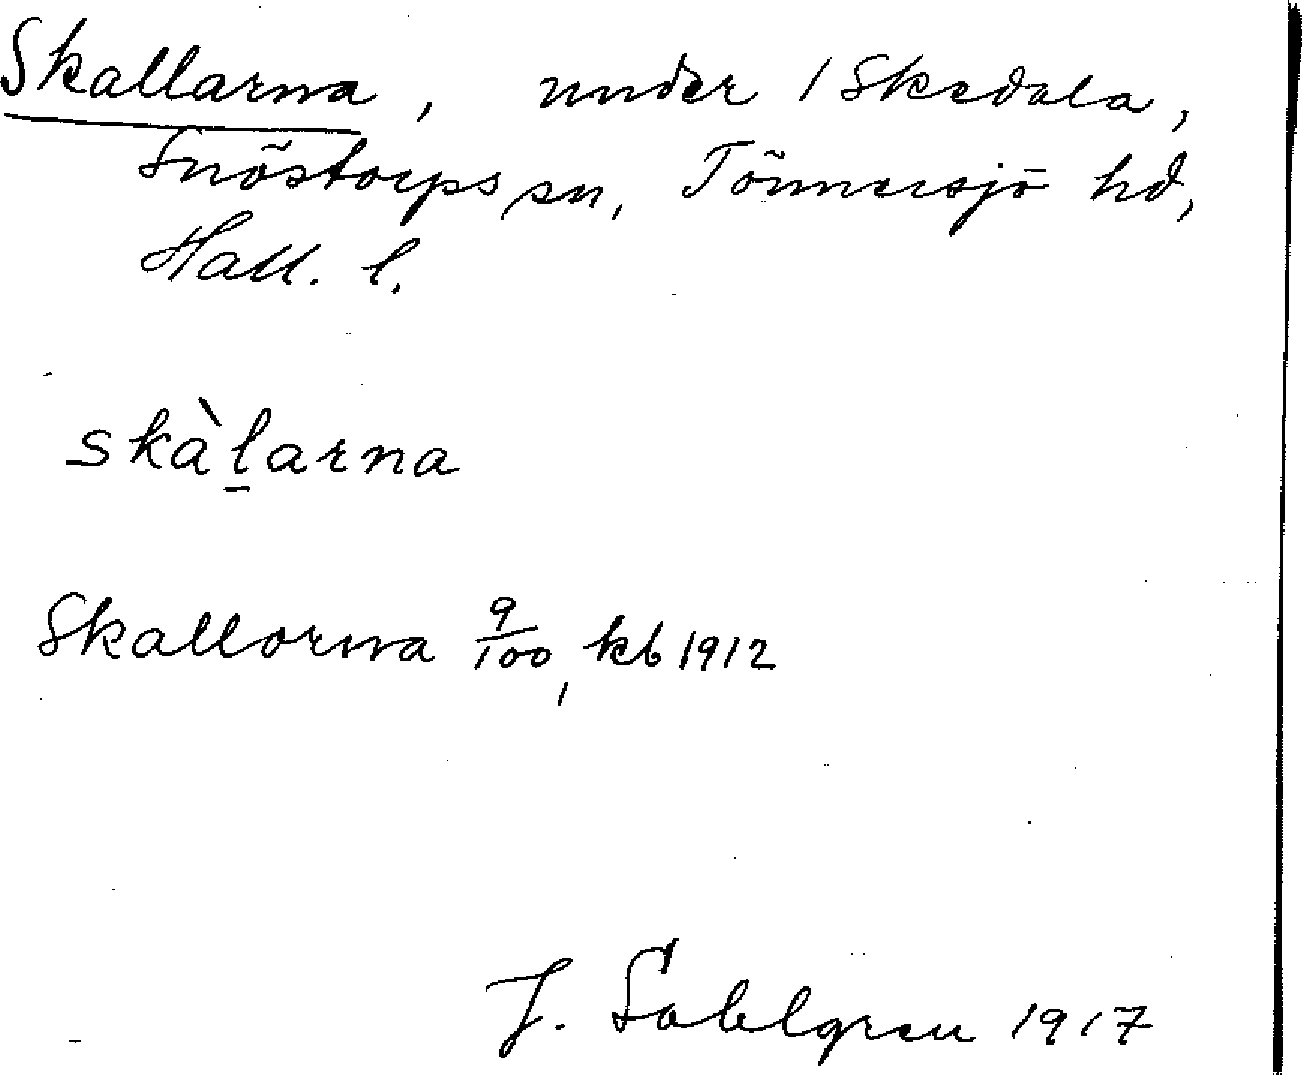 Skallarna, under 1 Skedala,
Snöstorps sn, Tönnersjö hd,
Hall. l.
skàl̠arna
Skallorna 9/100, kb 1912
J. Sahlgren 1917